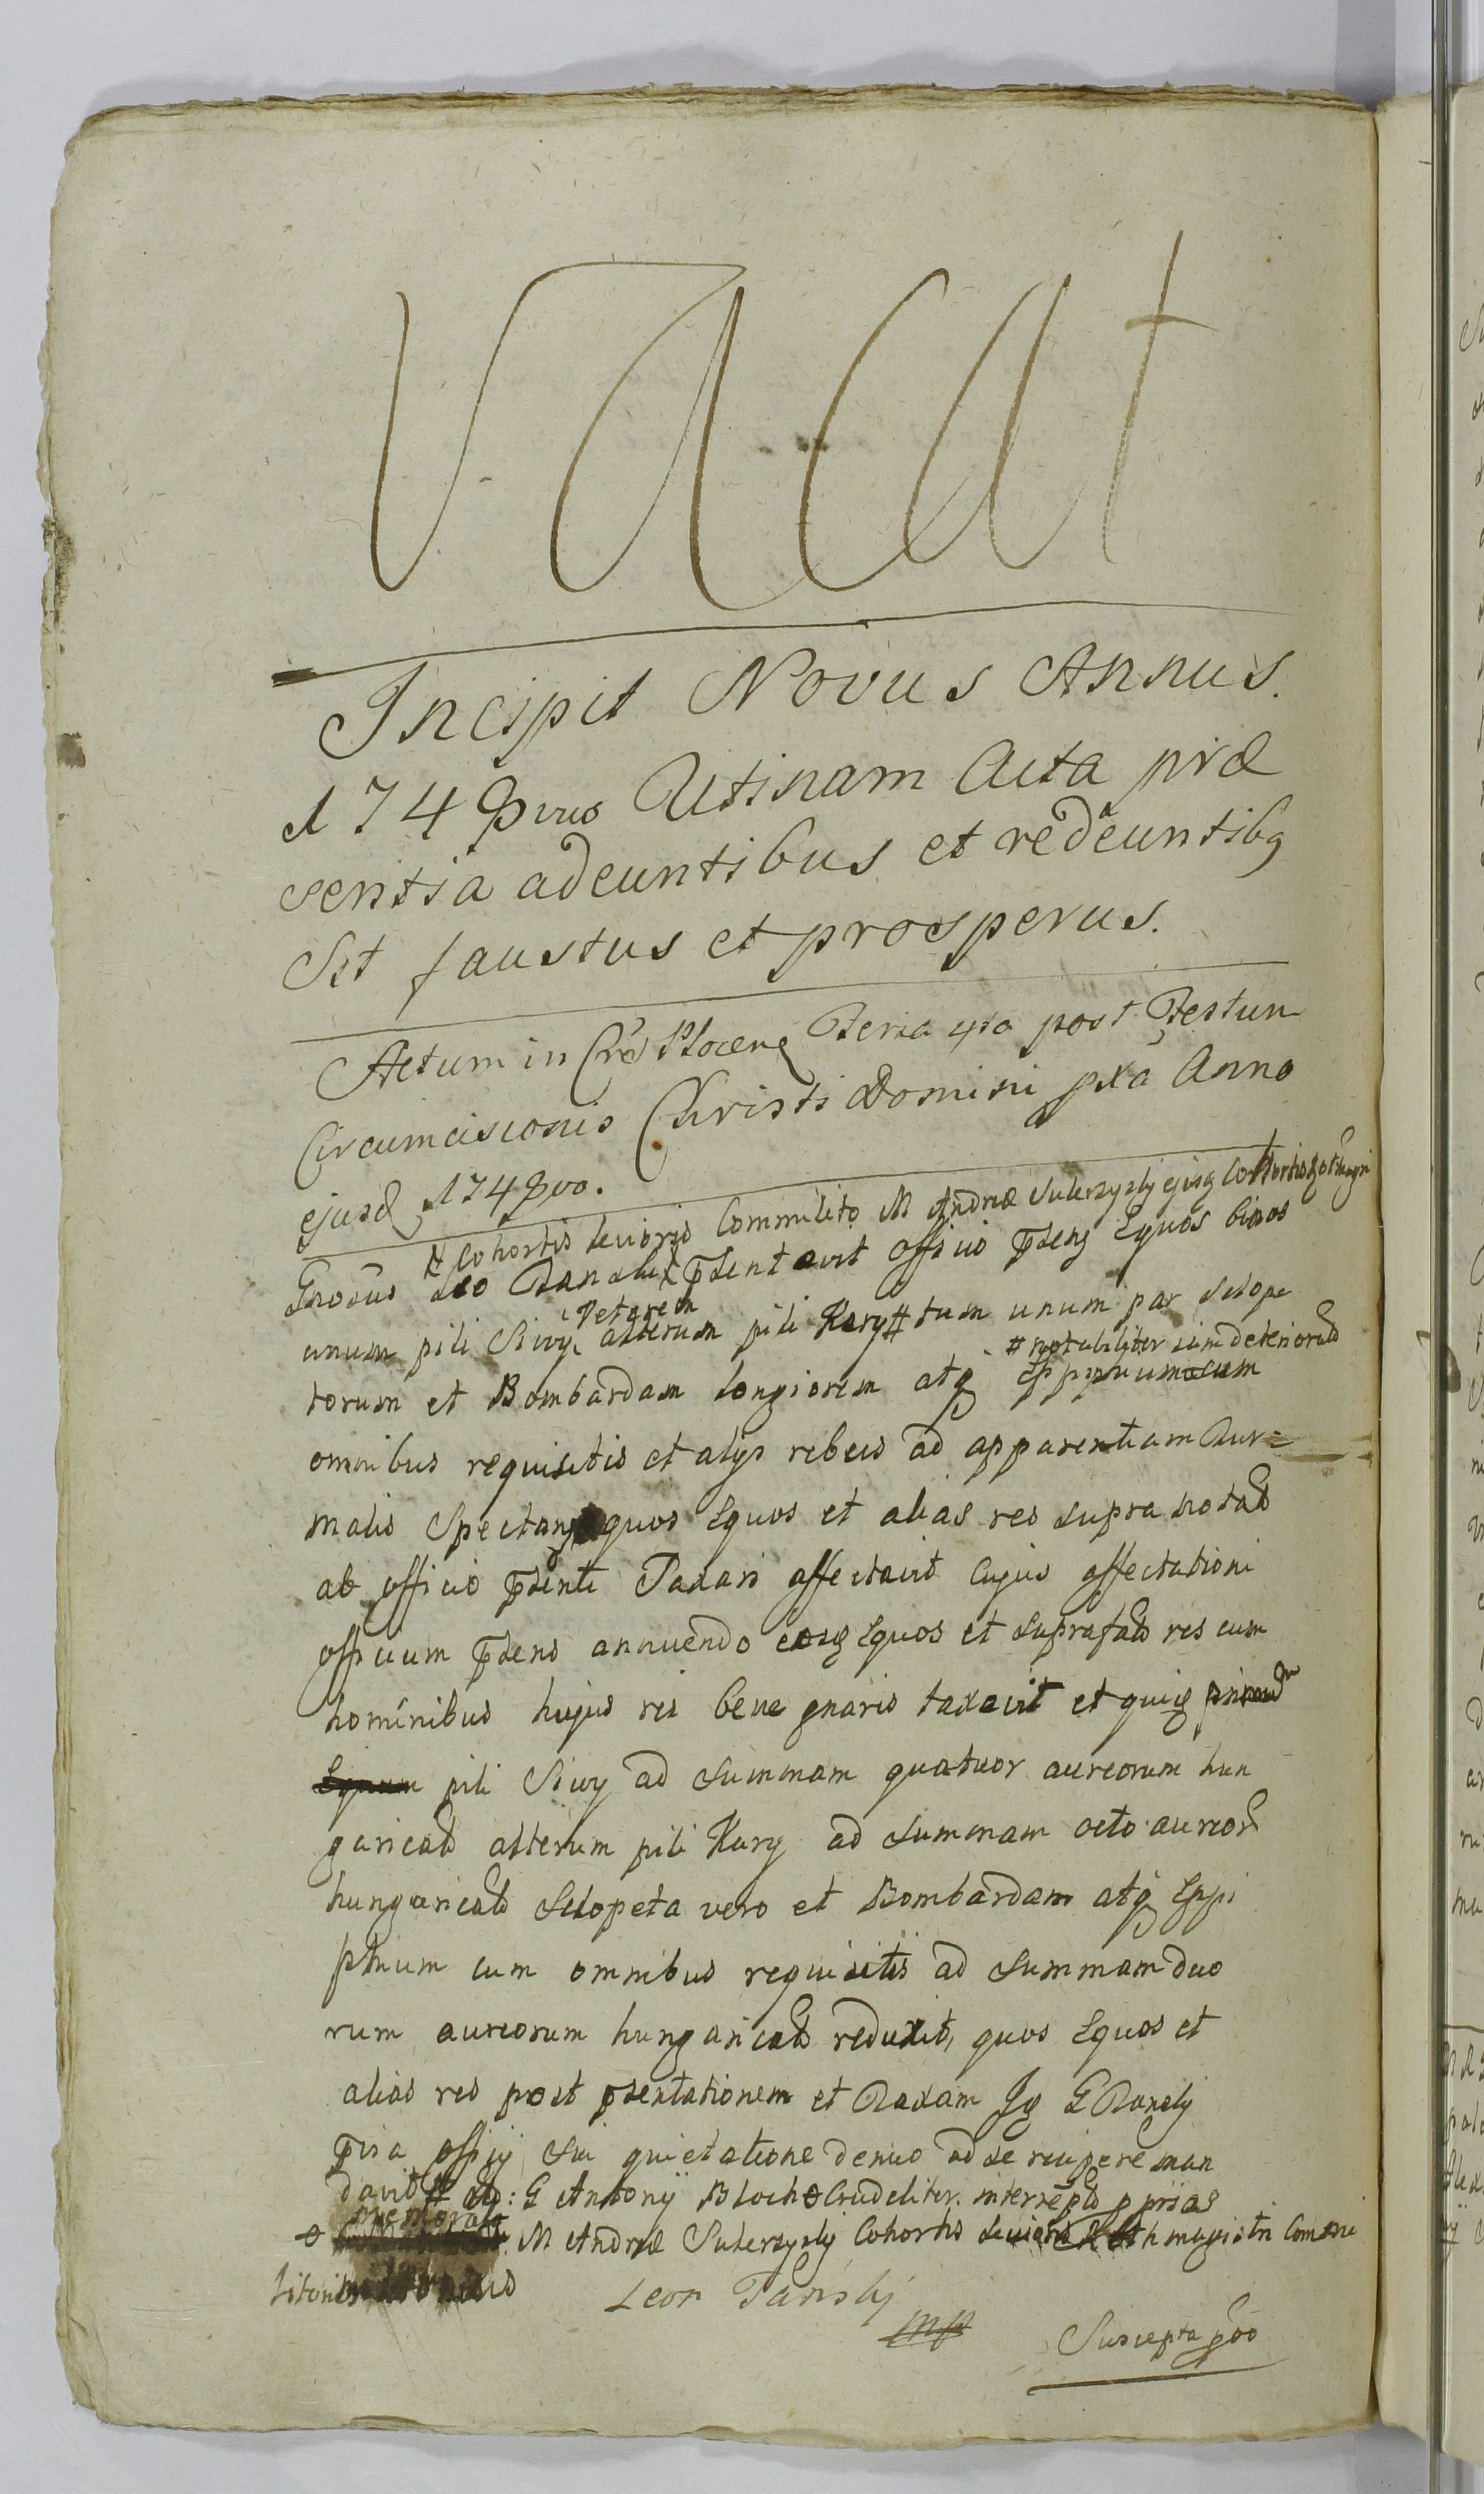 Vacat
Incipit Novus Annus.
1748vus Utinam Acta præ
sentia adeuntibus et redeuntibq
Sit faustus et prosperus.
Actum in Plocen Feria 4ta post Festum
Circumcisionis Christi Domini pxa Anno
ejusd 1748vo.
Cohortis levioris Commilito M Andreæ Suterzysky ejusq Cohortis
Gnosus Leo Tanski pdentavit officio pdens Equos binos
veterem
unum pili Siwy, alterum pili Kary # tum unum par sclope
# notabiliter jam deteriorat
torum et Bombardam longiorem atq Eppipium cum
omnibus requisitis et alys rebus ad apparentiam Tur=
malis Spectan quos Equos et alias res supra notat
ab officio pdenti Taxari affectavit cujus affectationi
officium pdens annuendo eosq Equos et suprafat res cum
hominibus hujus rei bene gnaris taxavit et quiq
Equum pili Siwy ad summam quatuor aureorum hun
garicat alterum pili Kary ad summam octo aureor
hungaricat Sclopeta vero et Bombardam atq Eppi
phium cum omnibus requisitis ad summam duo
rum aureorum hungaricat reduxit, quos Equos et
alias res post pdentationem et Taxam Jg G Tansky
pvia offjy sui quietatione denuo ad se recipere man
davit # G Antony Bloch crudeliter
memorat
M Andreæ Suterzysky Cohortis levioris Rothmagistri Commi
litonis
Leon Tansky
mp
Suscepta